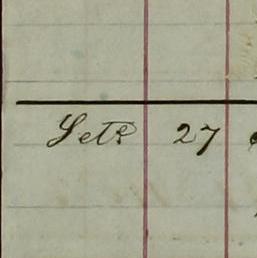 Setr 27